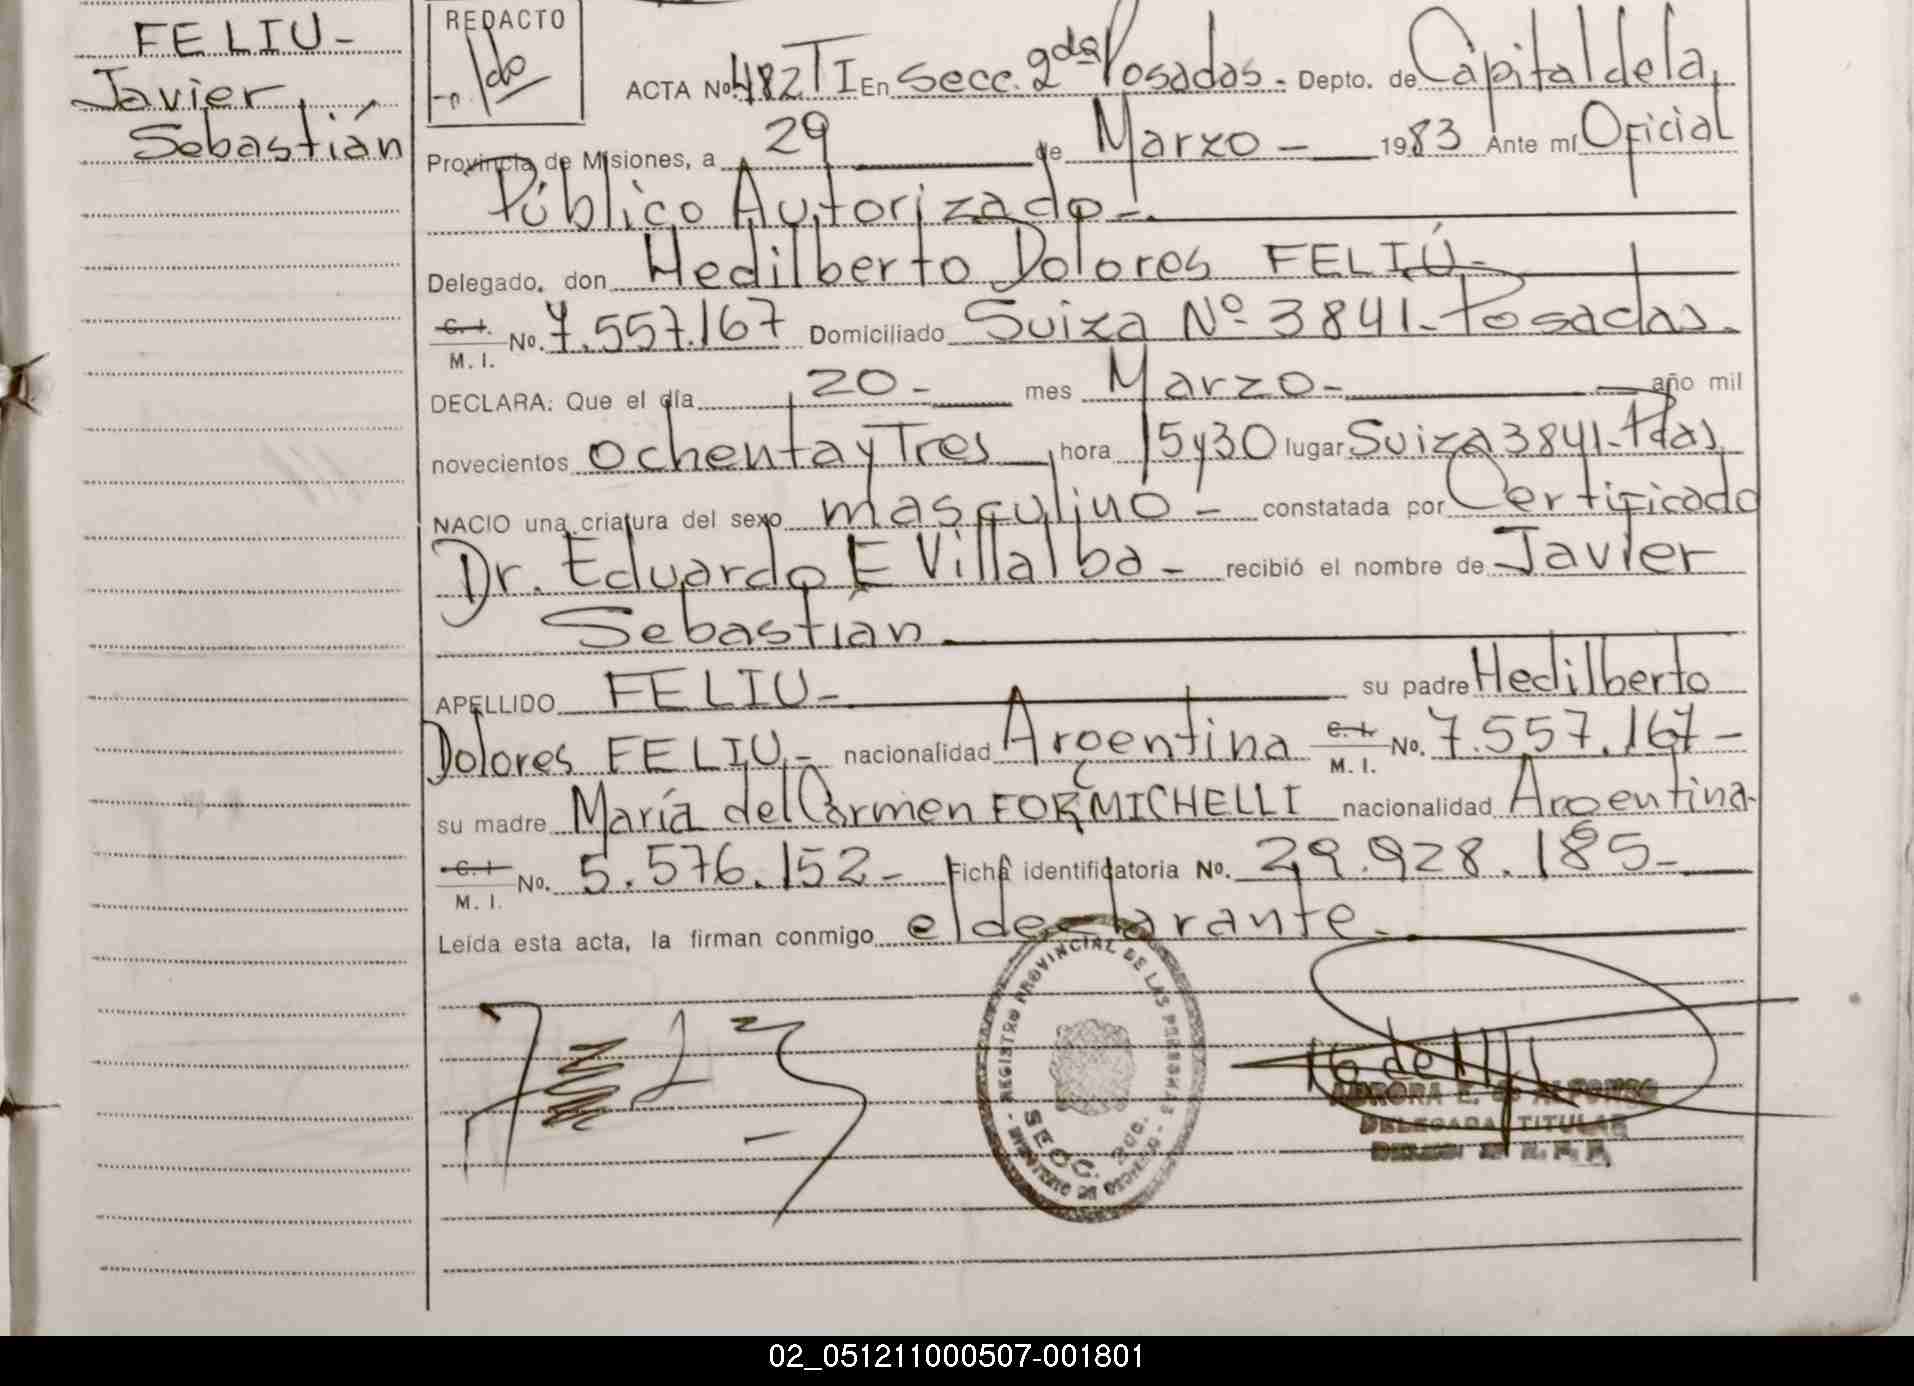 FELIU-
Javier
Sebastián
REDACTO
ACTA No. 482 T I En Secc. 2da Posadas - Depto. de Capital de la
Provincia de Misiones, a 29 de Marzo - 1983 Ante mí Oficial
Público Autorizado -.
Delegado, don Hedilberto Dolores FELIÚ-
C. I. / M. I. No. 7.557.167 Domiciliado Suiza Nº 3841-Posadas.
DECLARA: Que el día 20- mes Marzo- año mil
novecientos ochenta y Tres hora 15 y 30 lugar Suiza 3841-Pdas.
NACIO una criatura del sexo masculino - constatada por Certificado
Dr. Eduardo E Villalba - recibió el nombre de Javier
Sebastian
APELLIDO FELIU- su padre Hedilberto
Dolores FELIU,- nacionalidad Argentina C. I. / M. I. No. 7.557.167-
su madre María del Carmen FORMICHELLI nacionalidad Argentina-
C. I. / M. I. No. 5.576.152- Ficha identificatoria No. 29.928.185-
Leída esta acta, la firman conmigo el declarante.
REGISTRO PROVINCIAL DE LAS PERSONAS - MINISTERIO DE GOBIERNO -
SECC. 2DA.
AURORA E. de ALFONSO
DELEGADA TITULAR
02_051211000507-001801